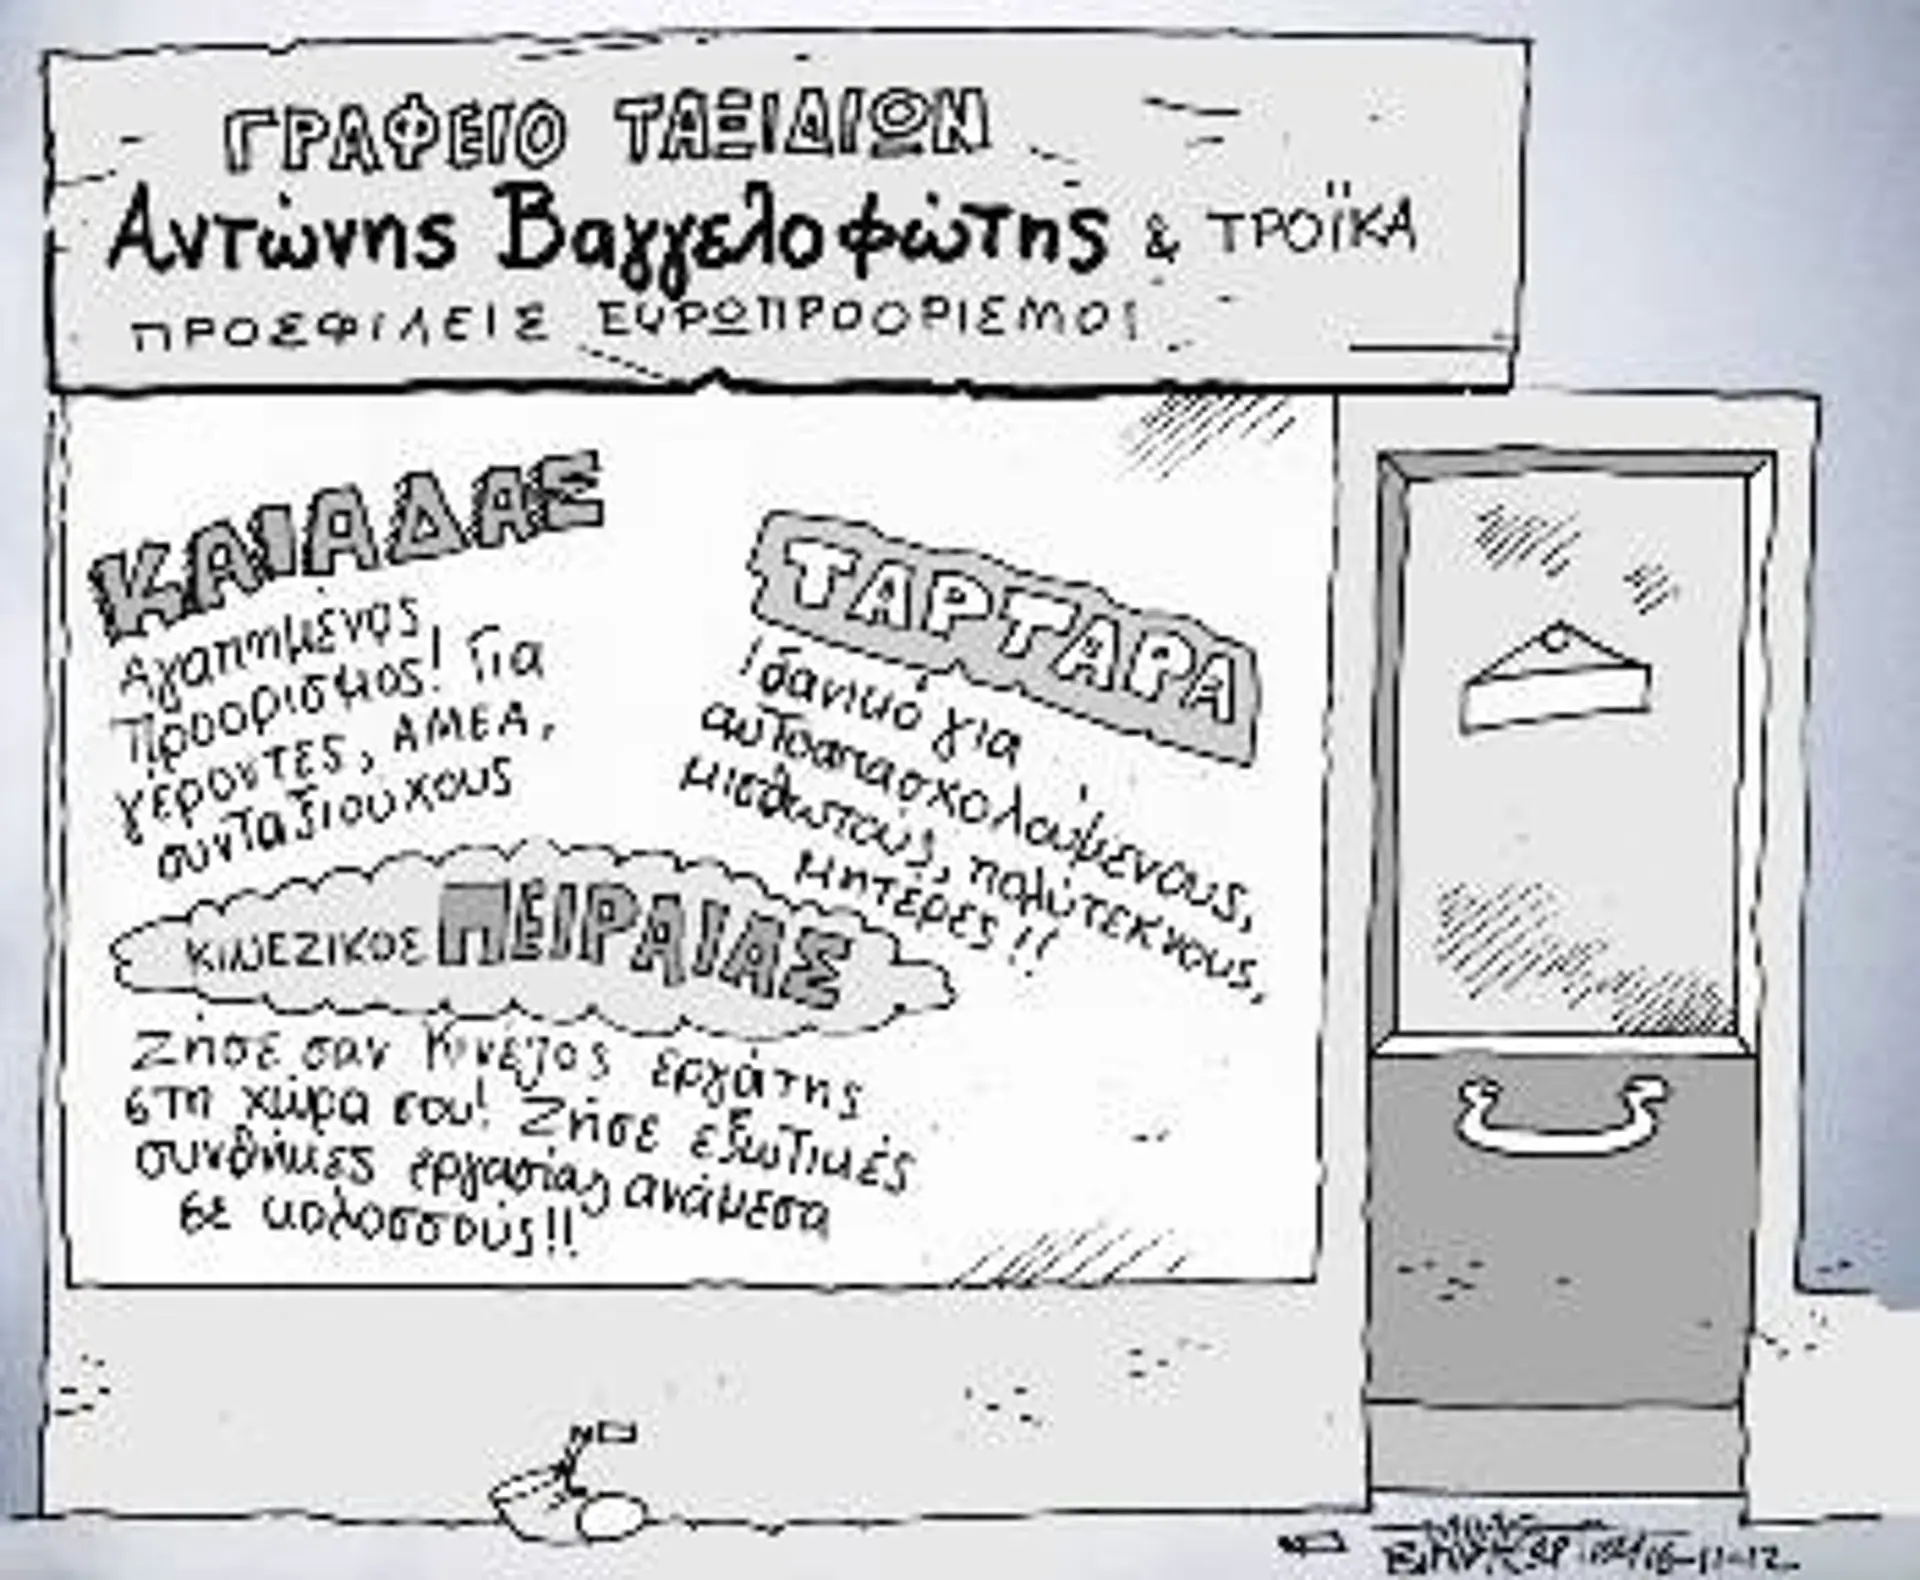 ΓΡΑΦΕΙΟ ΤΑΞΙΔΙΩΝ
Αντώνης Βαγγελοφώτης & ΤΡΟΪΚΑ
ΠΡΟΣΦΙΛΕΙΣ ΕΥΡΩΠΡΟΟΡΙΣΜΟΙ
ΚΑΙΑΔΑΣ
Αγαπημένος
Προορισμός! Για
γέροντες, ΑΜΕΑ,
συνταξιούχους
ΤΑΡΤΑΡΑ
Ιδανικό για
αυτοαπασχολούμενους,
μισθωτούς, πολύτεκνους,
μητέρες!!
ΚΙΝΕΖΙΚΟΣ ΠΕΙΡΑΙΑΣ
Ζήσε σαν Κινέζος εργάτης
στη χώρα σου! Ζήσε εξωτικές
συνθήκες εργασίας ανάμεσα
σε κολοσσούς!!
16-11-12